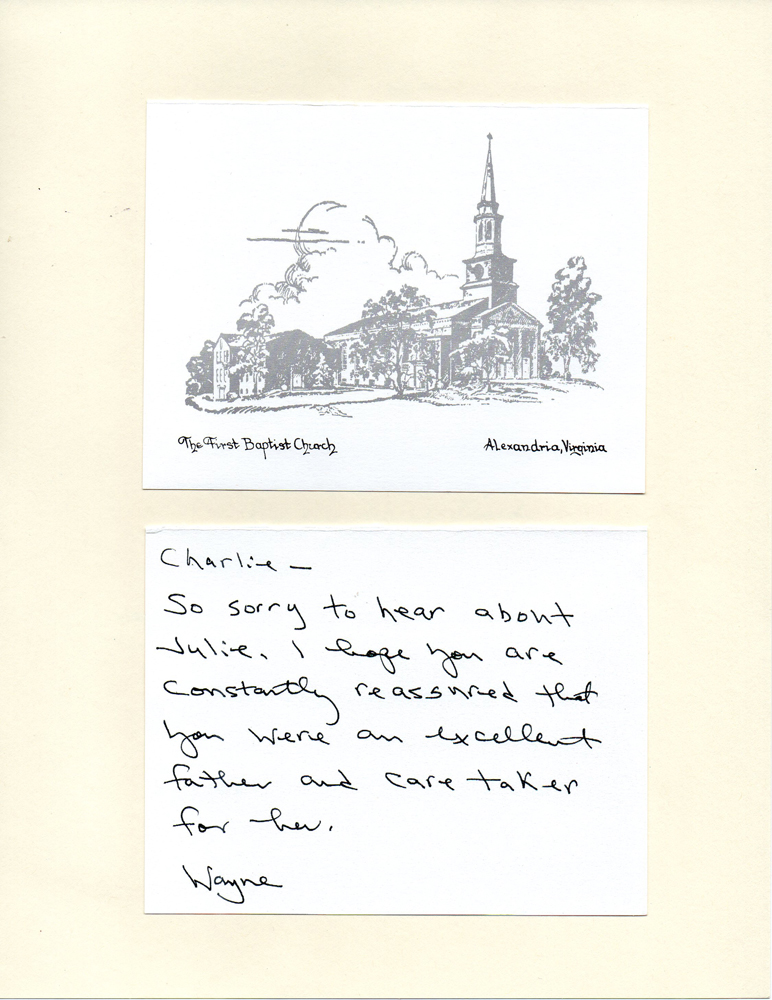 The First Baptist Church
Alexandria, Virginia
Charlie —
So sorry to hear about
Julie. I hope you are
constantly reassured that
you were an excellent
father and care taker
for her.
Wayne